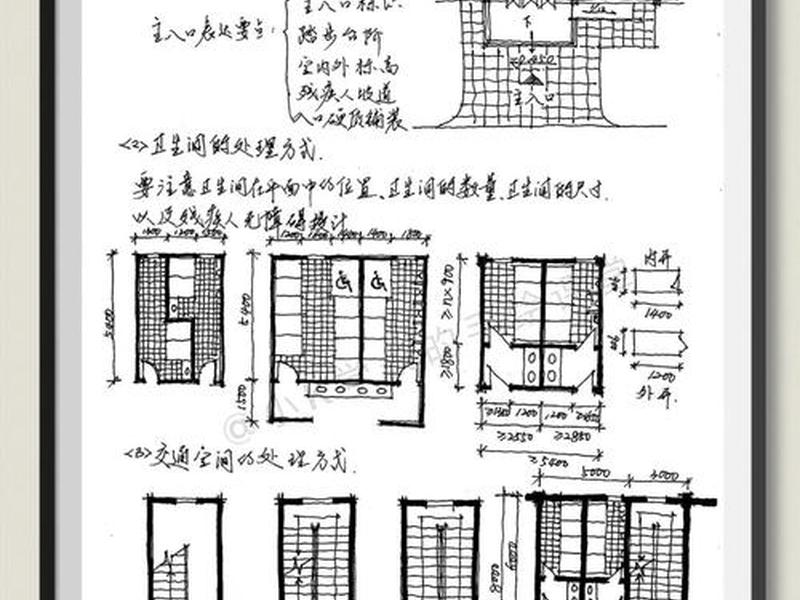 主入口标识
主入口表达要点:
踏步台阶
室内外标高
残疾人坡道
入口硬质铺装
下
±0.000
主入口
<2>卫生间的处理方式.
要注意卫生间在平面中的位置、卫生间的数量、卫生间的尺寸.
以及残疾人无障碍设计
1200
1400
1400
5400
5400
1500
≥n×900
≥1800
内开
1400
1200
外开.
1200
1200
≥2550
≥2850
≥5400
<3>交通空间的处理方式.
5000
3000